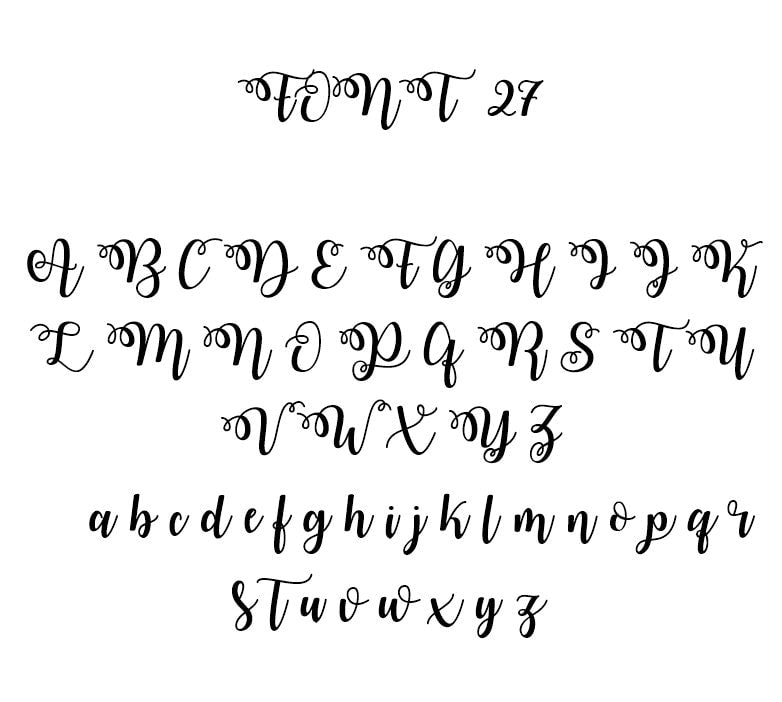 FONT 27
A B C D E F G H I J K
L M N O P Q R S T U
V W X Y Z
a b c d e f g h i j k l m n o p q r
s t u v w x y z